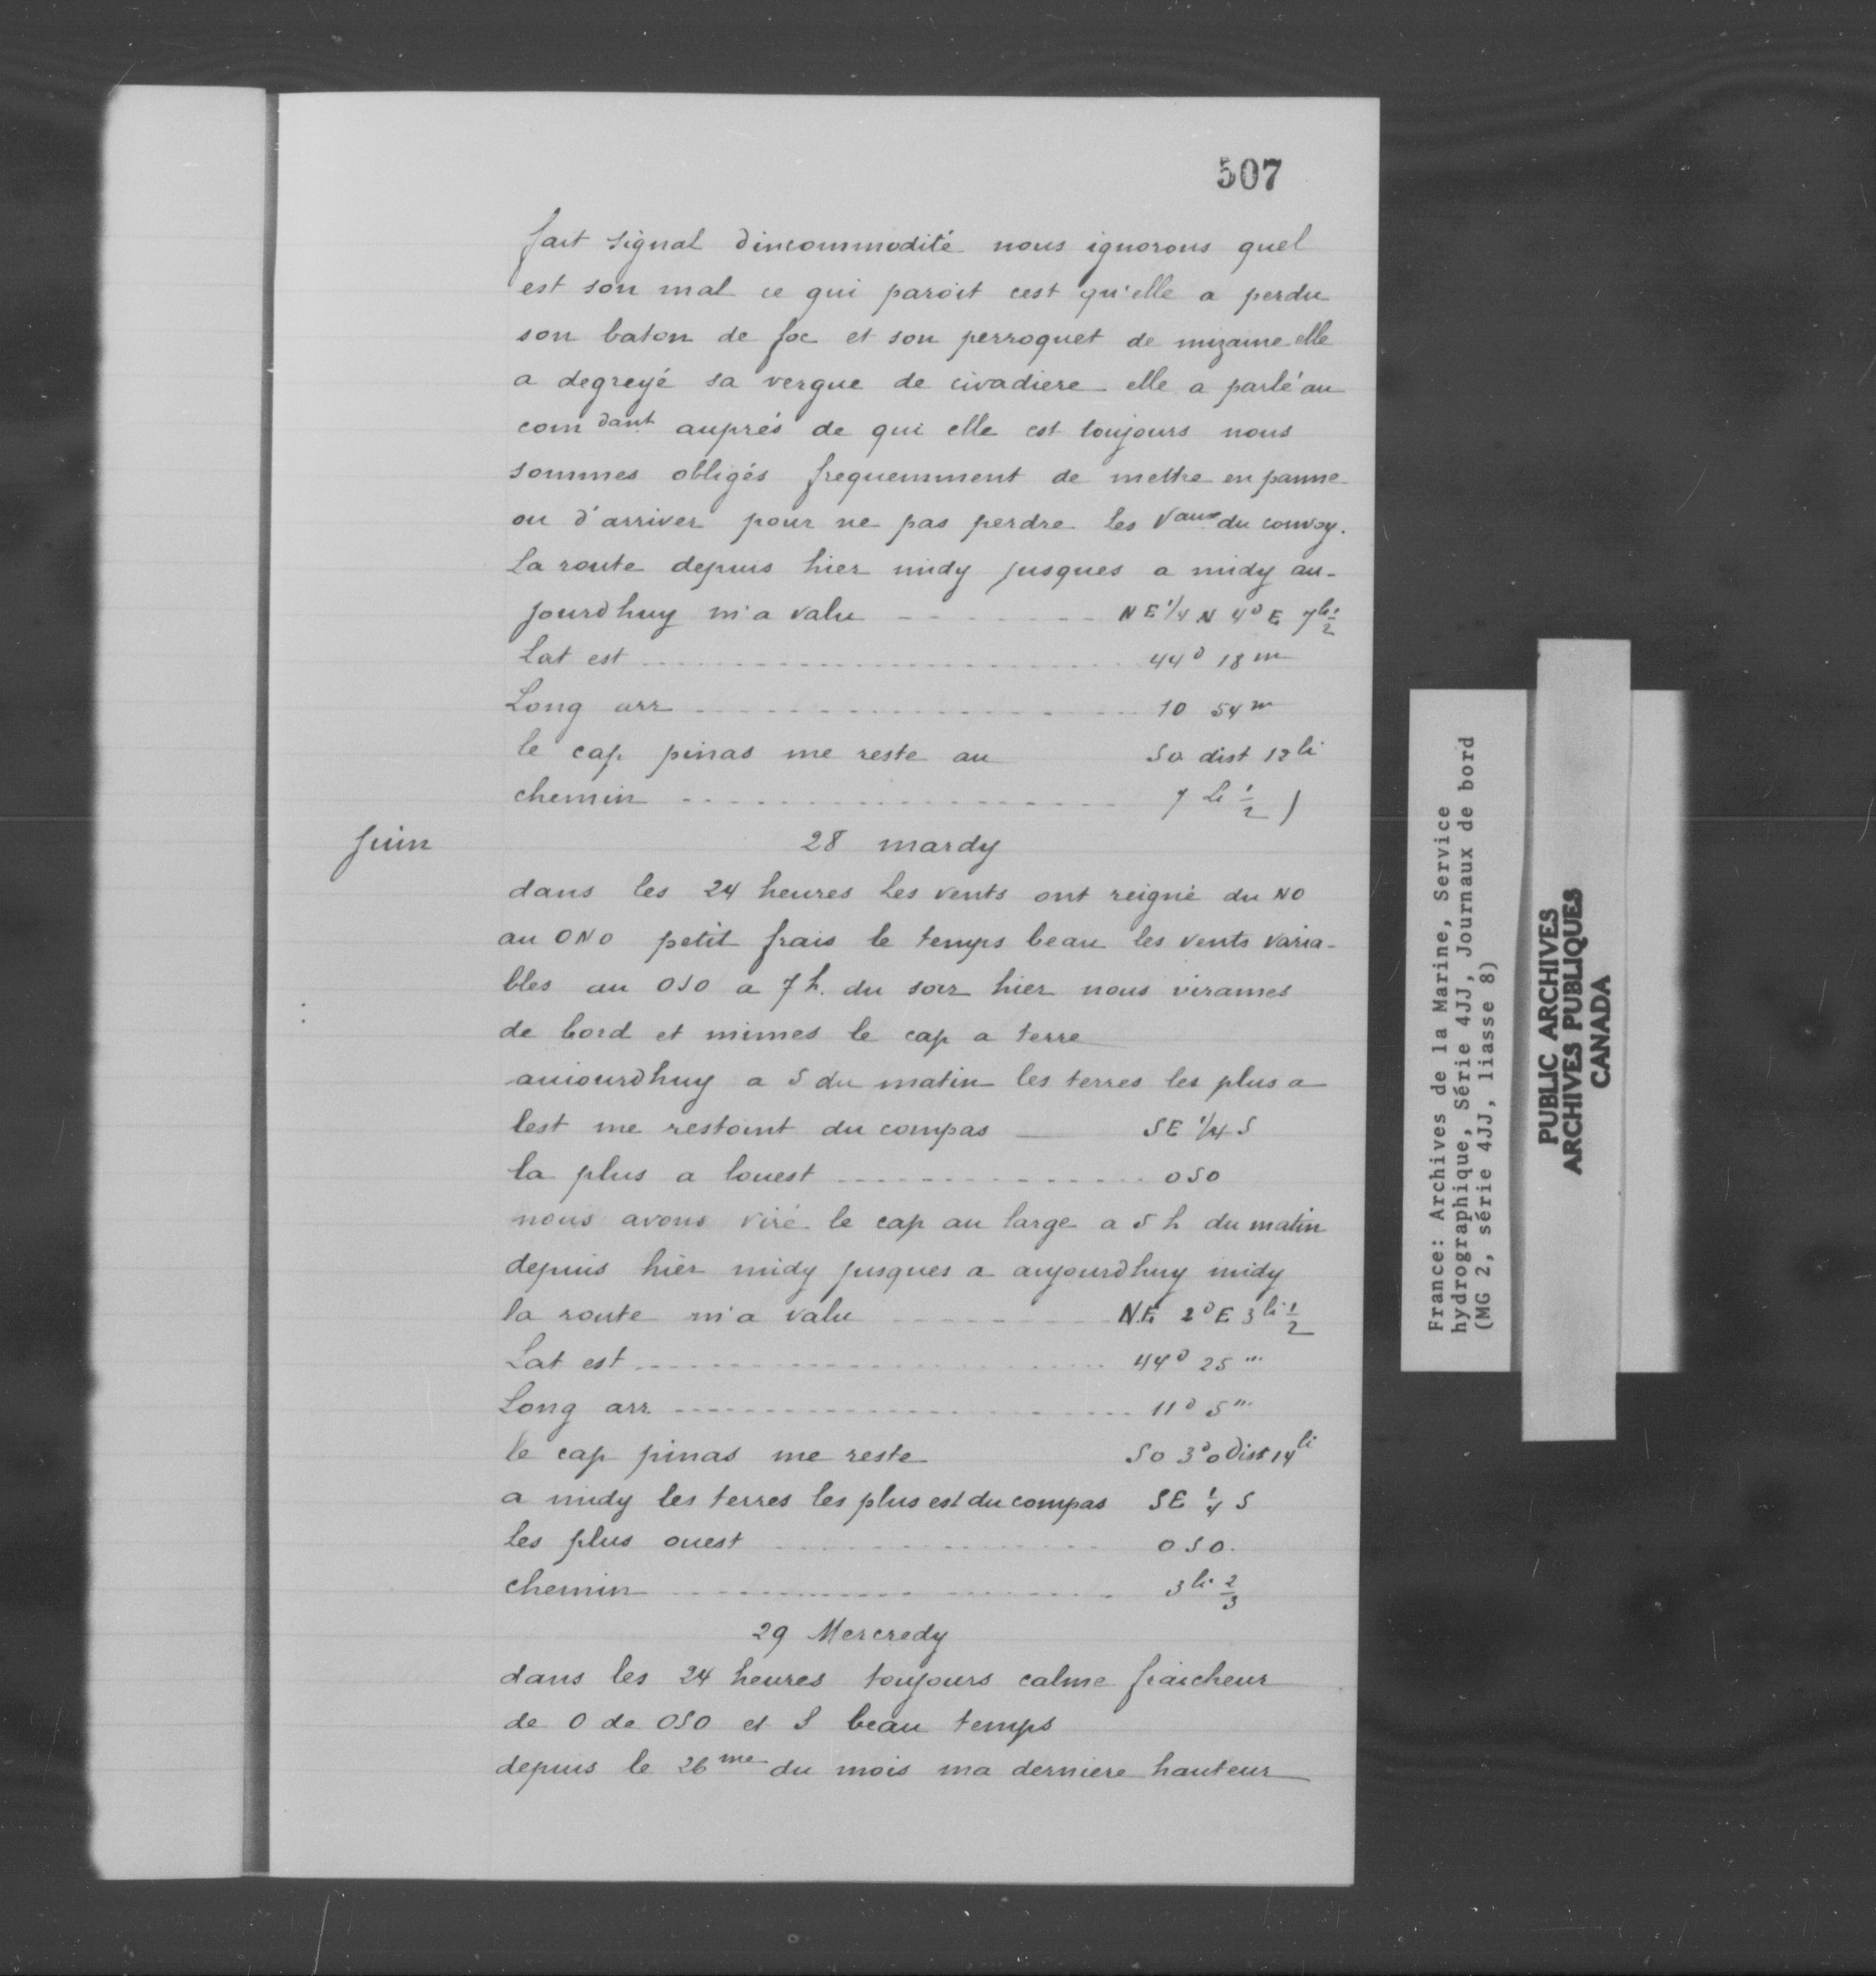 507
fait signal dincommodité nous ignorons quel
est son mal ce qui paroit cest qu'elle a perdu
son baton de foc et son perroquet de mizaine elle
a degreyé sa vergue de civadiere elle a parlé au
com dant auprés de qui elle est toujours nous
sommes obligés frequemment de mettre en panne
ou d'arriver pour ne pas perdre les Vaux du convoy.
La route depuis hier midy jusques a midy au-
jourdhuy m'a valu NE 1/4 N 4d E 7li 1/2
Lat est 44d 18m
Long arr 10 54m
le cap pinas me reste au So dist 12li
chemin 7 li 1/2 )
Juin
28 mardy
dans les 24 heures les vents ont reigné du NO
au ONO petit frais le temps beau les vents varia-
bles au OSO a 7 h. du soir hier nous virames
de bord et mimes le cap a terre
auiourdhuy a 5 du matin les terres les plus a
lest me restoint du compas SE 1/4 S
la plus a louest OSO
nous avons viré le cap au large a 5 h du matin
depuis hier midy jusques a aujourdhuy midy
la route m'a valu NE 2d E 3li 1/2
Lat est 44d 25m
Long arr 11d 5m
le cap pinas me reste So 3d o Dist 14li
a midy les terres les plus est du compas SE 1/4 S
les plus ouest OSO.
chemin 3li 2/3
29 Mercredy
dans les 24 heures toujours calme fraicheur
de O de OSO et S beau temps
depuis le 26me du mois ma derniere hauteur
France: Archives de la Marine, Service
hydrographique, Série 4JJ, Journaux de bord
(MG 2, série 4JJ, liasse 8)
PUBLIC ARCHIVES
ARCHIVES PUBLIQUES
CANADA